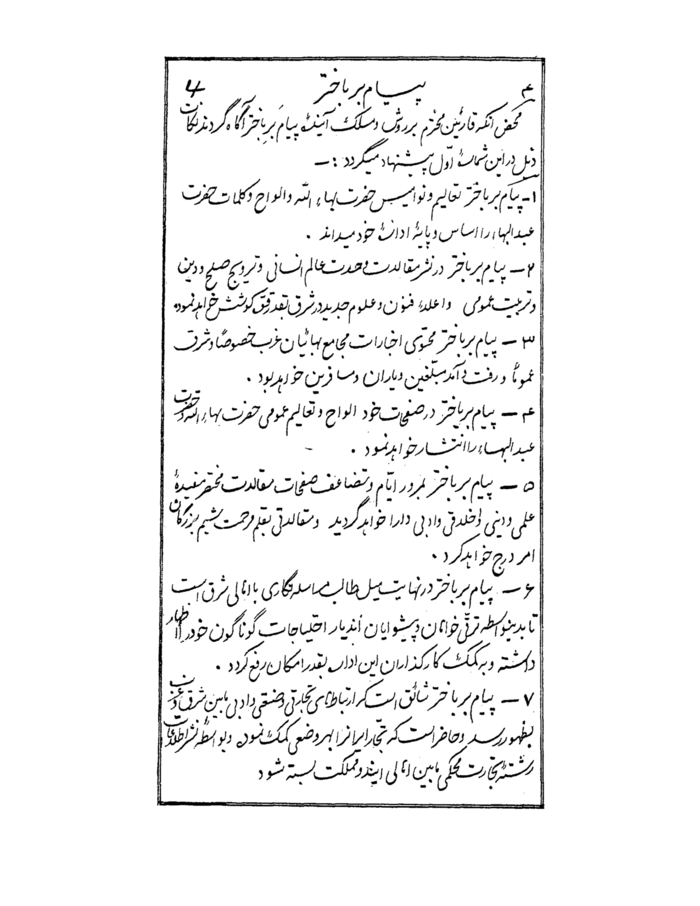 ۴ پیام بر باختر 4
محض آنکه قارئین محترم بر روش و مسلک آینده پیام بر باختر آگاه گردند نکات
ذیل در این شماره اوّل پیشنهاد میگردد :ــ
۱ــ پیام بر باختر تعالیم و نوامیس حضرت بهاءالله و الواح و کلمات حضرت
عبدالبهاء را اساس و پایهٔ ادارهٔ خود میداند .
۲ــ پیام بر باختر در نشر مقالات وحدت عالم انسانی و ترویج صلح و دین
و تربیت عمومی و اعلاء فنون و علوم جدید در شرق بقدر قوّه کوشش خواهد نمود
۳ــ پیام بر باختر محتوی اخبارات مجامع بهائیان غرب خصوصاً و شرق
عموماً و رفت و آمد مبلغین و یاران و مسافرین خواهد بود .
۴ــ پیام بر باختر در صفحات خود الواح و تعالیم عمومی حضرت بهاءالله و حضرت
عبدالبهاء را انتشار خواهد نمود .
۵ــ پیام بر باختر بمرور ایّام و تضاعف صفحات مقالات مختصر مفیدهٔ
علمی و دینی و اخلاقی و ادبی دارا خواهد گردید و مقالاتی بقلم بزرگان
امر درج خواهد کرد .
۶ــ پیام بر باختر در نهایت میل طالب مراسله نگاری با اهالی شرق است
تا بدینواسطه ترقّی خواهان و پیشوایان آندیار احتیاجات گوناگون خود را اظهار
داشته و به کمک کارگذاران این اداره بقدر امکان رفع گردد .
۷ــ پیام بر باختر شائق است که ارتباطهای تجارتی و صنعتی و ادبی مابین شرق و غرب
بظهور رسد و حاضر است که تجّار ایرانرا بهر وضعی کمک نموده و بواسطه نشر اطلاعات
رشتهٔ تجارت محکمی مابین اهالی ایندو مملکت بسته شود